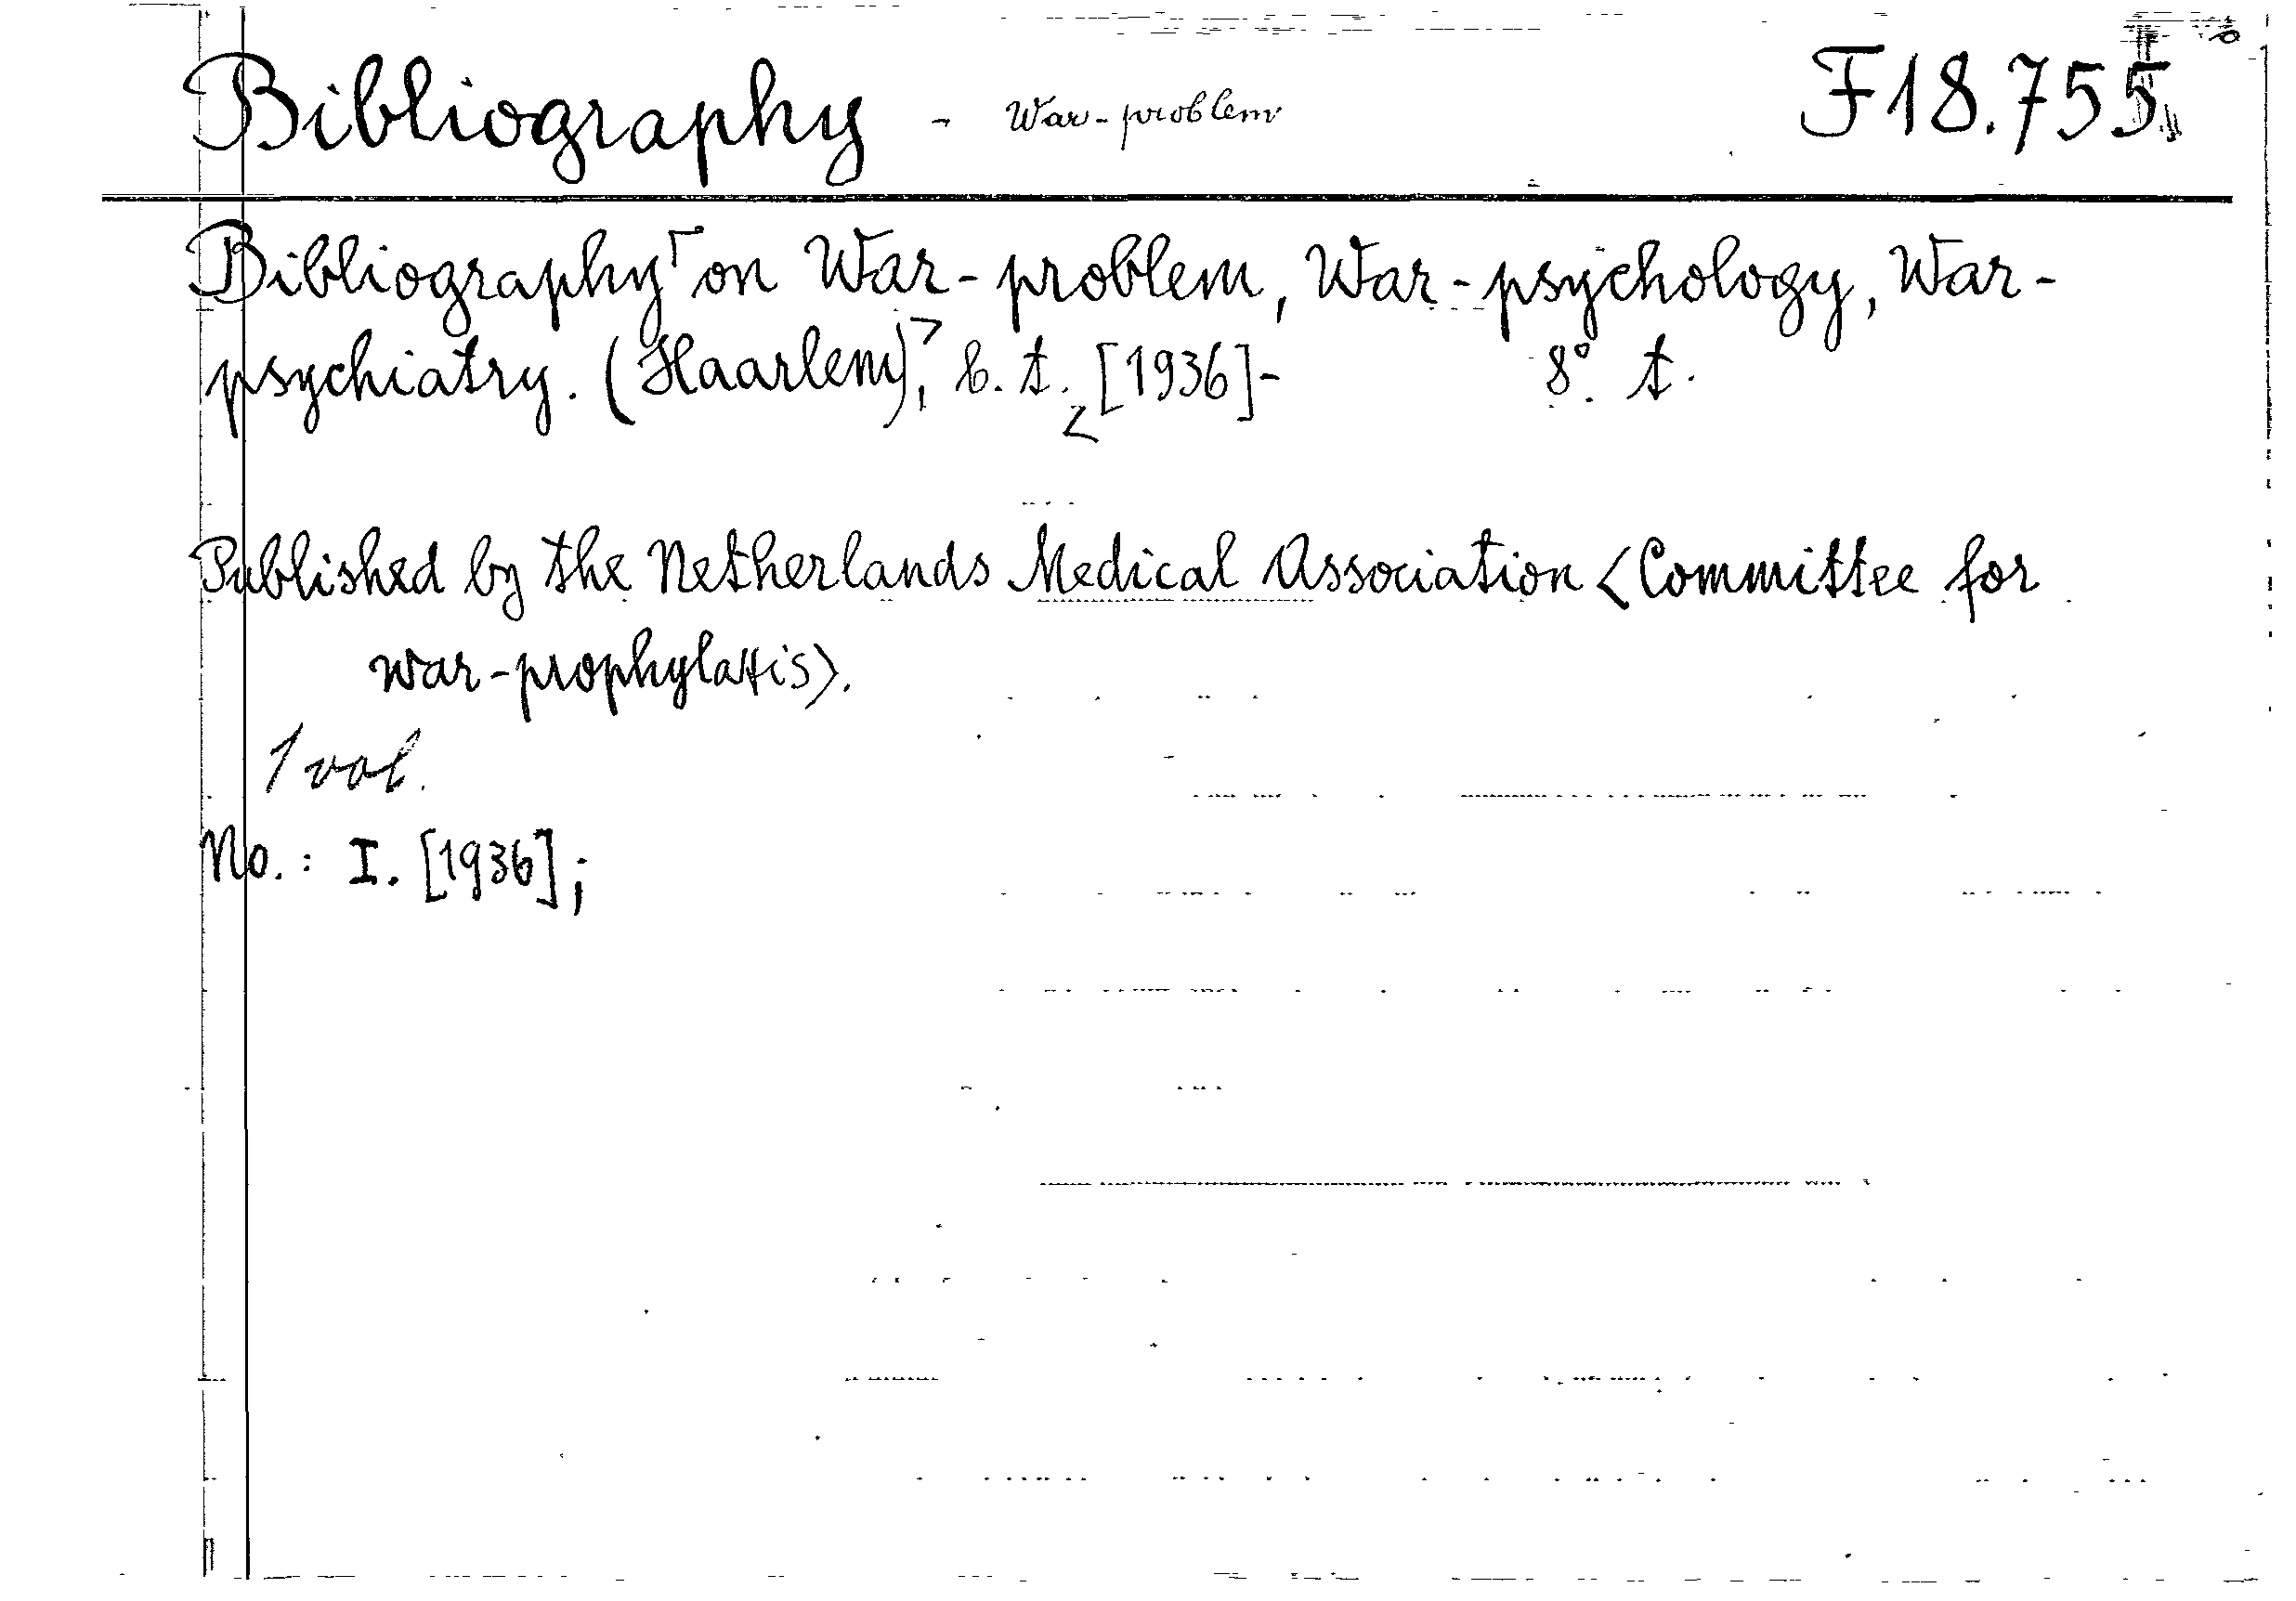 Bibliography - War-problem F 18.755
Bibliography on War-problem, War-psychology, War-
psychiatry. (Haarlem), b. t. [1936]- 8°. t.
Published by the Netherlands Medical Association <Committee for
war-prophylaxis>.
1 vol.
No.: I. [1936];